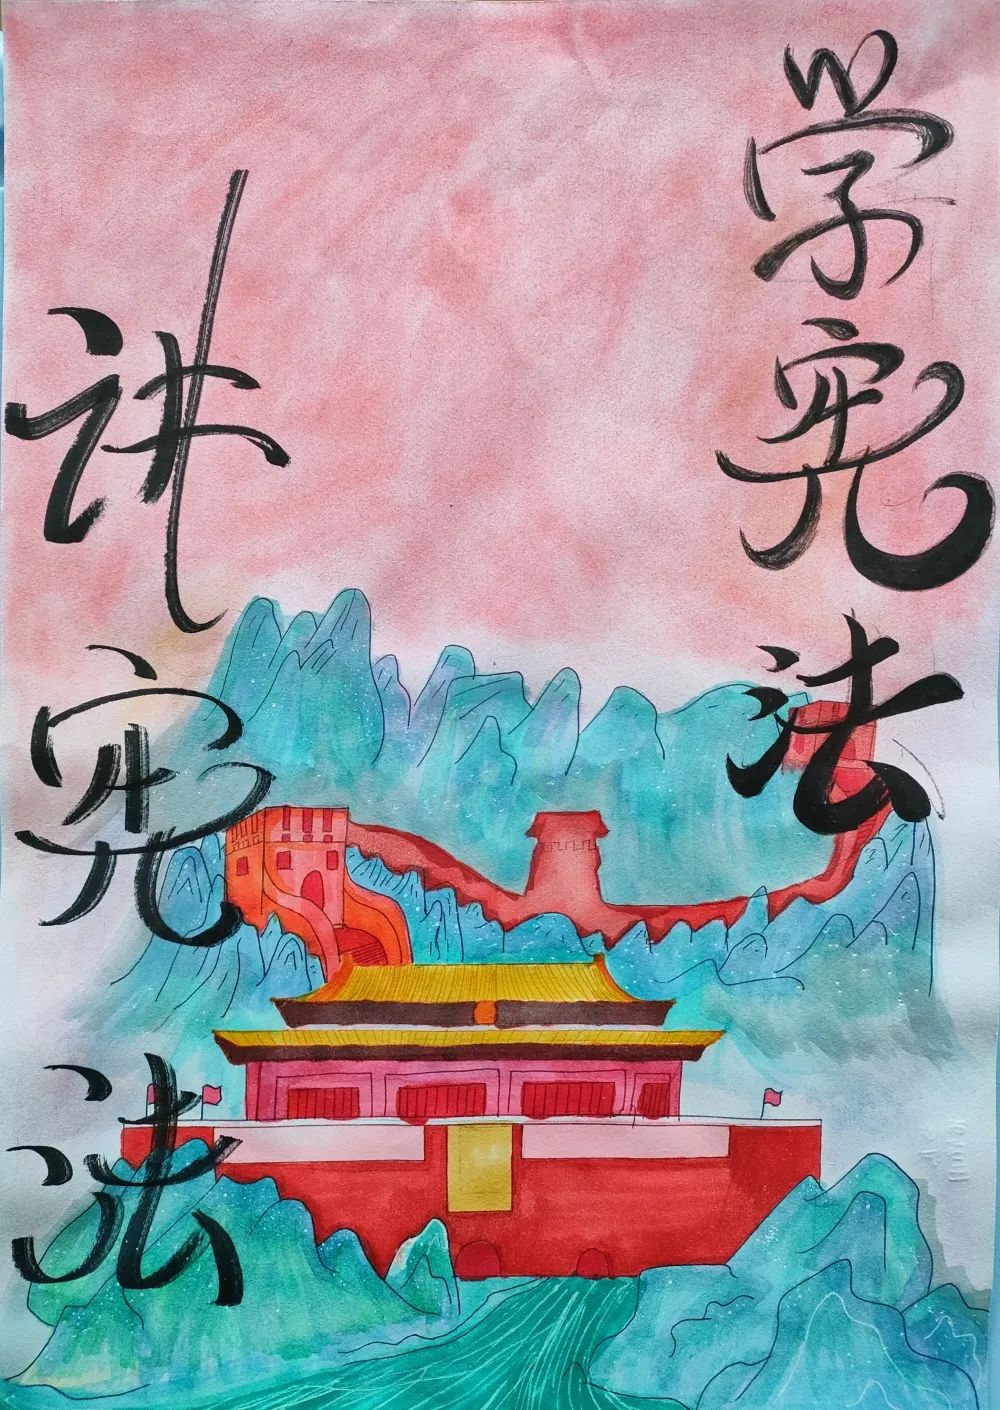 学宪法
讲宪法